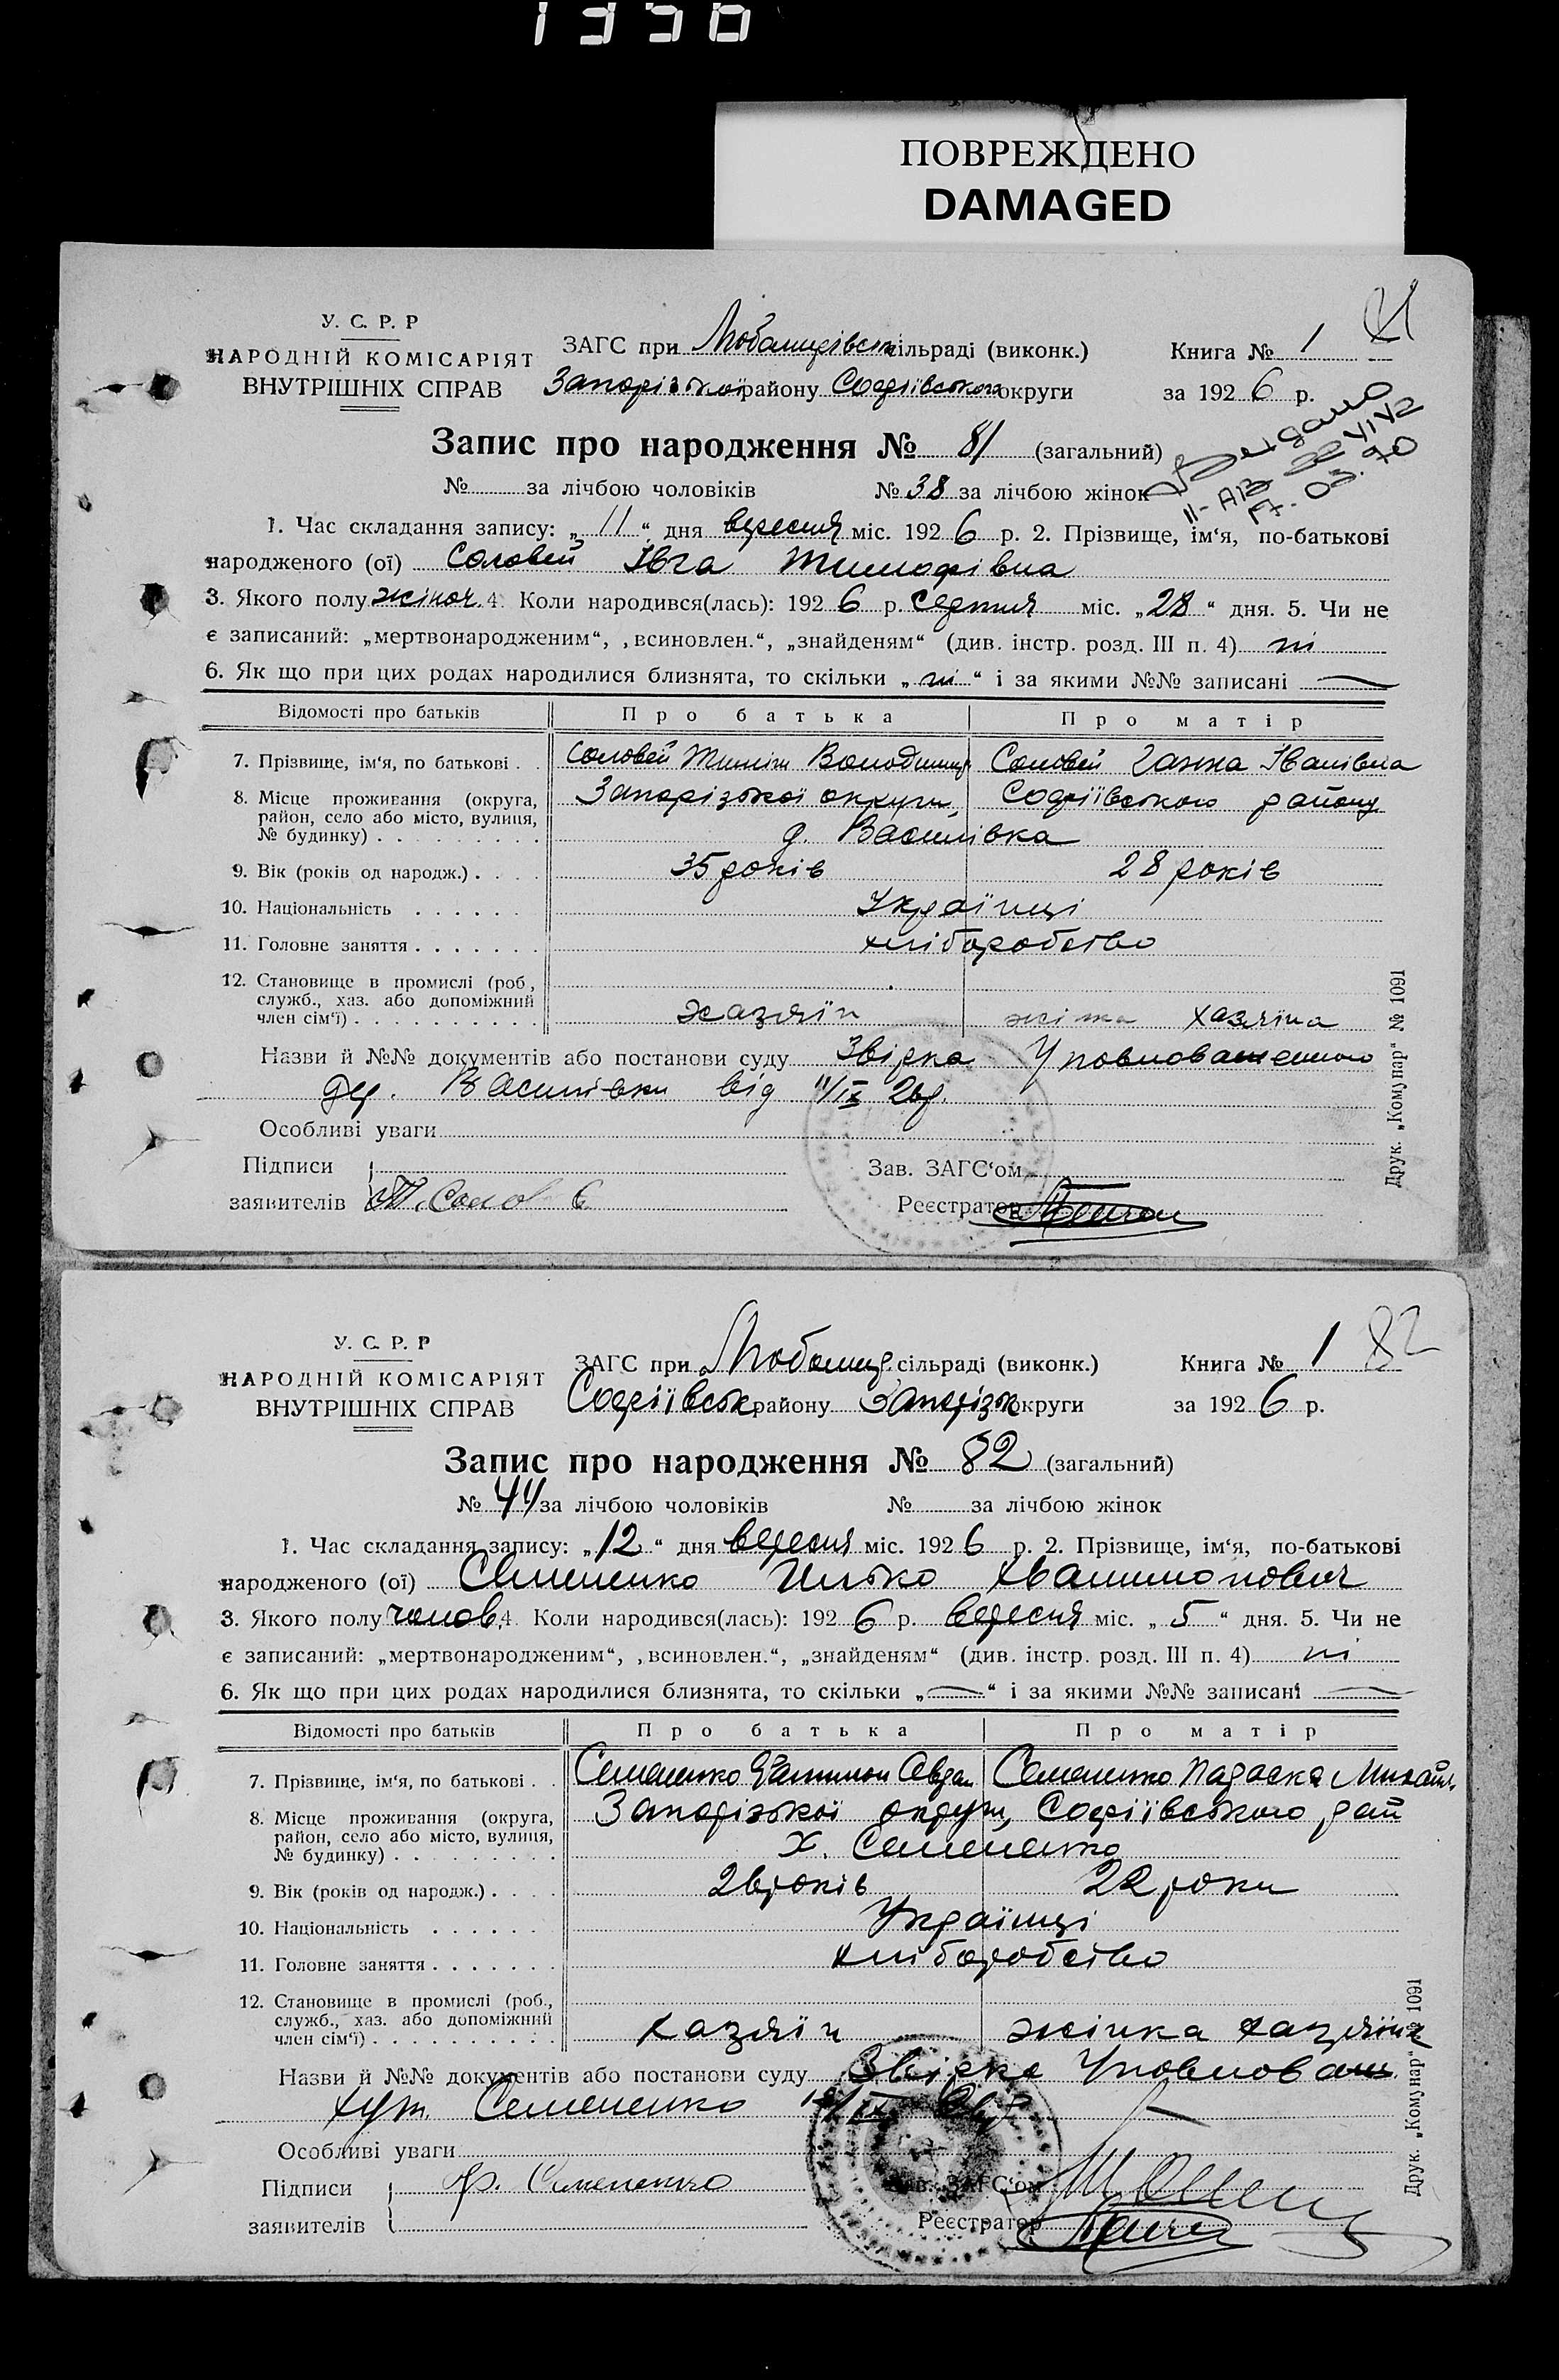 1356
ПОВРЕЖДЕНО
DAMAGED
У. С. Р. Р
НАРОДНІЙ КОМІСАРІЯТ
ВНУТРІШНІХ СПРАВ
ЗАГС при Любомирівськ сільраді (виконк.)
Запорізької району Софіївського округи
Книга № 1 81
за 1926 р.
Запис про народження № 81 (загальний)
№ за лічбою чоловіків № 38 за лічбою жінок
1. Час складання запису: „11“ дня вересня міс. 1926 р. 2. Прізвище, ім‘я, по-батькові
народженого (ої) Соловей Івга Тимофівна
3. Якого полу жіноч. 4. Коли народився(лась): 1926 р. серпня міс. „28“ дня. 5. Чи не
є записаний: „мертвонародженим“, „всиновлен.“, „знайденям“ (див. інстр. розд. III п. 4) ні
6. Як що при цих родах народилися близнята, то скільки „ні“ і за якими №№ записані —
Відомості про батьків Про батька Про матір
7. Прізвище, ім‘я, по батькові . . Соловей Тиміш Володимир Соловей Ганна Іванівна
8. Місце проживання (округа, район, село або місто, вулиця, № будинку) . . . . . . . . . Запорізької округи, Софіївського району
д. Василівка
9. Вік (років од народж.) . . . . 35 років 28 років
10. Національність . . . . . . Українці
11. Головне заняття . . . . . . . хліборобство
12. Становище в промислі (роб., служб., хаз. або допоміжний член сім‘ї) . . . . . . . . . . хазяїн жінка хазяїна
Назви й №№ документів або постанови суду Звірка Уповноваженного
дер. Василівки від 11/IX 26р.
Особливі уваги
Підписи
заявителів Т. Солове
Зав. ЗАГС‘ом
Реєстратор
Друк. „Комунар“ № 1091
У. С. Р. Р
НАРОДНІЙ КОМІСАРІЯТ
ВНУТРІШНІХ СПРАВ
ЗАГС при Любомир. сільраді (виконк.)
Софіївськ району Запорізьк округи
Книга № 1 82
за 1926 р.
Запис про народження № 82 (загальний)
№ 44 за лічбою чоловіків № за лічбою жінок
1. Час складання запису: „12“ дня вересня міс. 1926 р. 2. Прізвище, ім‘я, по-батькові
народженого (ої) Семененко Илько
3. Якого полу чолов. 4. Коли народився(лась): 1926 р. вересня міс. „5“ дня. 5. Чи не
є записаний: „мертвонародженим“, „всиновлен.“, „знайденям“ (див. інстр. розд. III п. 4) ні
6. Як що при цих родах народилися близнята, то скільки „—“ і за якими №№ записані —
Відомості про батьків Про батька Про матір
7. Прізвище, ім‘я, по батькові . . Семененко Семененко Параска Михайл.
8. Місце проживання (округа, район, село або місто, вулиця, № будинку) . . . . . . . . . Запорізької округи, Софіївського рай
х. Семененко
9. Вік (років од народж.) . . . . 26 років 22 роки
10. Національність . . . . . . Українці
11. Головне заняття . . . . . . . хліборобство
12. Становище в промислі (роб., служб., хаз. або допоміжний член сім‘ї) . . . . . . . . . . хазяїн жінка хазяїна
Назви й №№ документів або постанови суду Звірка Уповноваж.
хут. Семененко 12/IX 26р
Особливі уваги
Підписи
заявителів Семененко
Зав. ЗАГС‘ом
Реєстратор
Друк. „Комунар“ № 1091